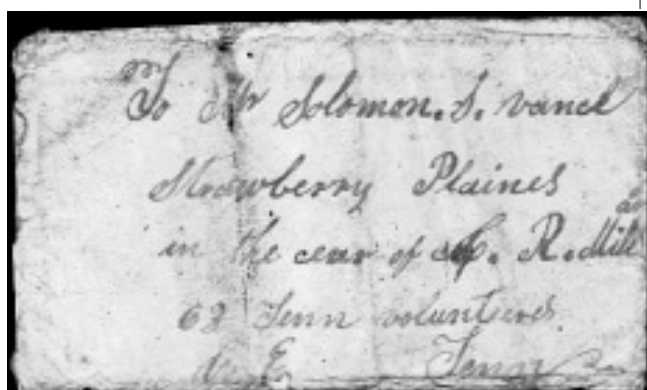 To Mr Solomon. S. vance
Strawberry Plaines
in the cear of C. R. Mill
62 Tenn volunteers
E Tenn